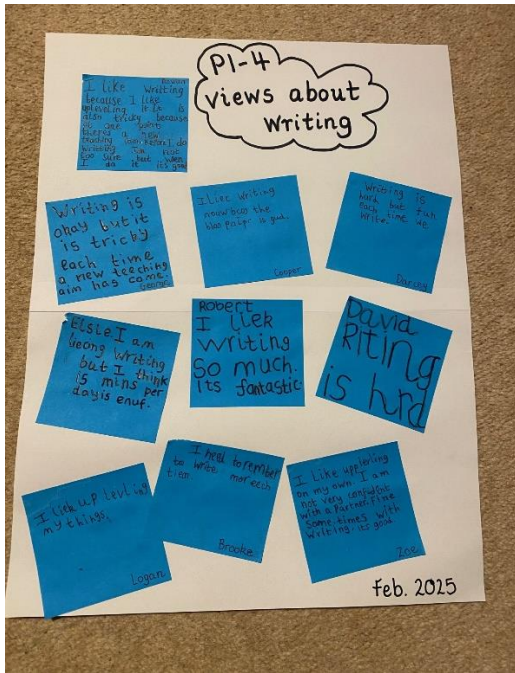 P1-4
views about
writing
Rowan
I like writing
because I like
upleveling it. It is
also tricky because
towers a new
teaching
I do it it's good
Writing is
okay but it
is tricby
each time
a new teeching
aim has come.
George
I liec writing
the
is gud.
Cooper
writing is
hard but fun
each time we
write.
Darcey
Elsie I am
beong writing
but I think
15 mins per
day is enuf.
Robert
I liek
writing
so much.
its fantastic
David
RITING
is hrd
I liek up levling
my things.
Logan
I need to rember
to write mor eech
tiem.
Brooke
I like upplerling
on my own. I am
not very confident
with a Partner. fine
some times with
writing. its good
Zoe
Feb. 2025